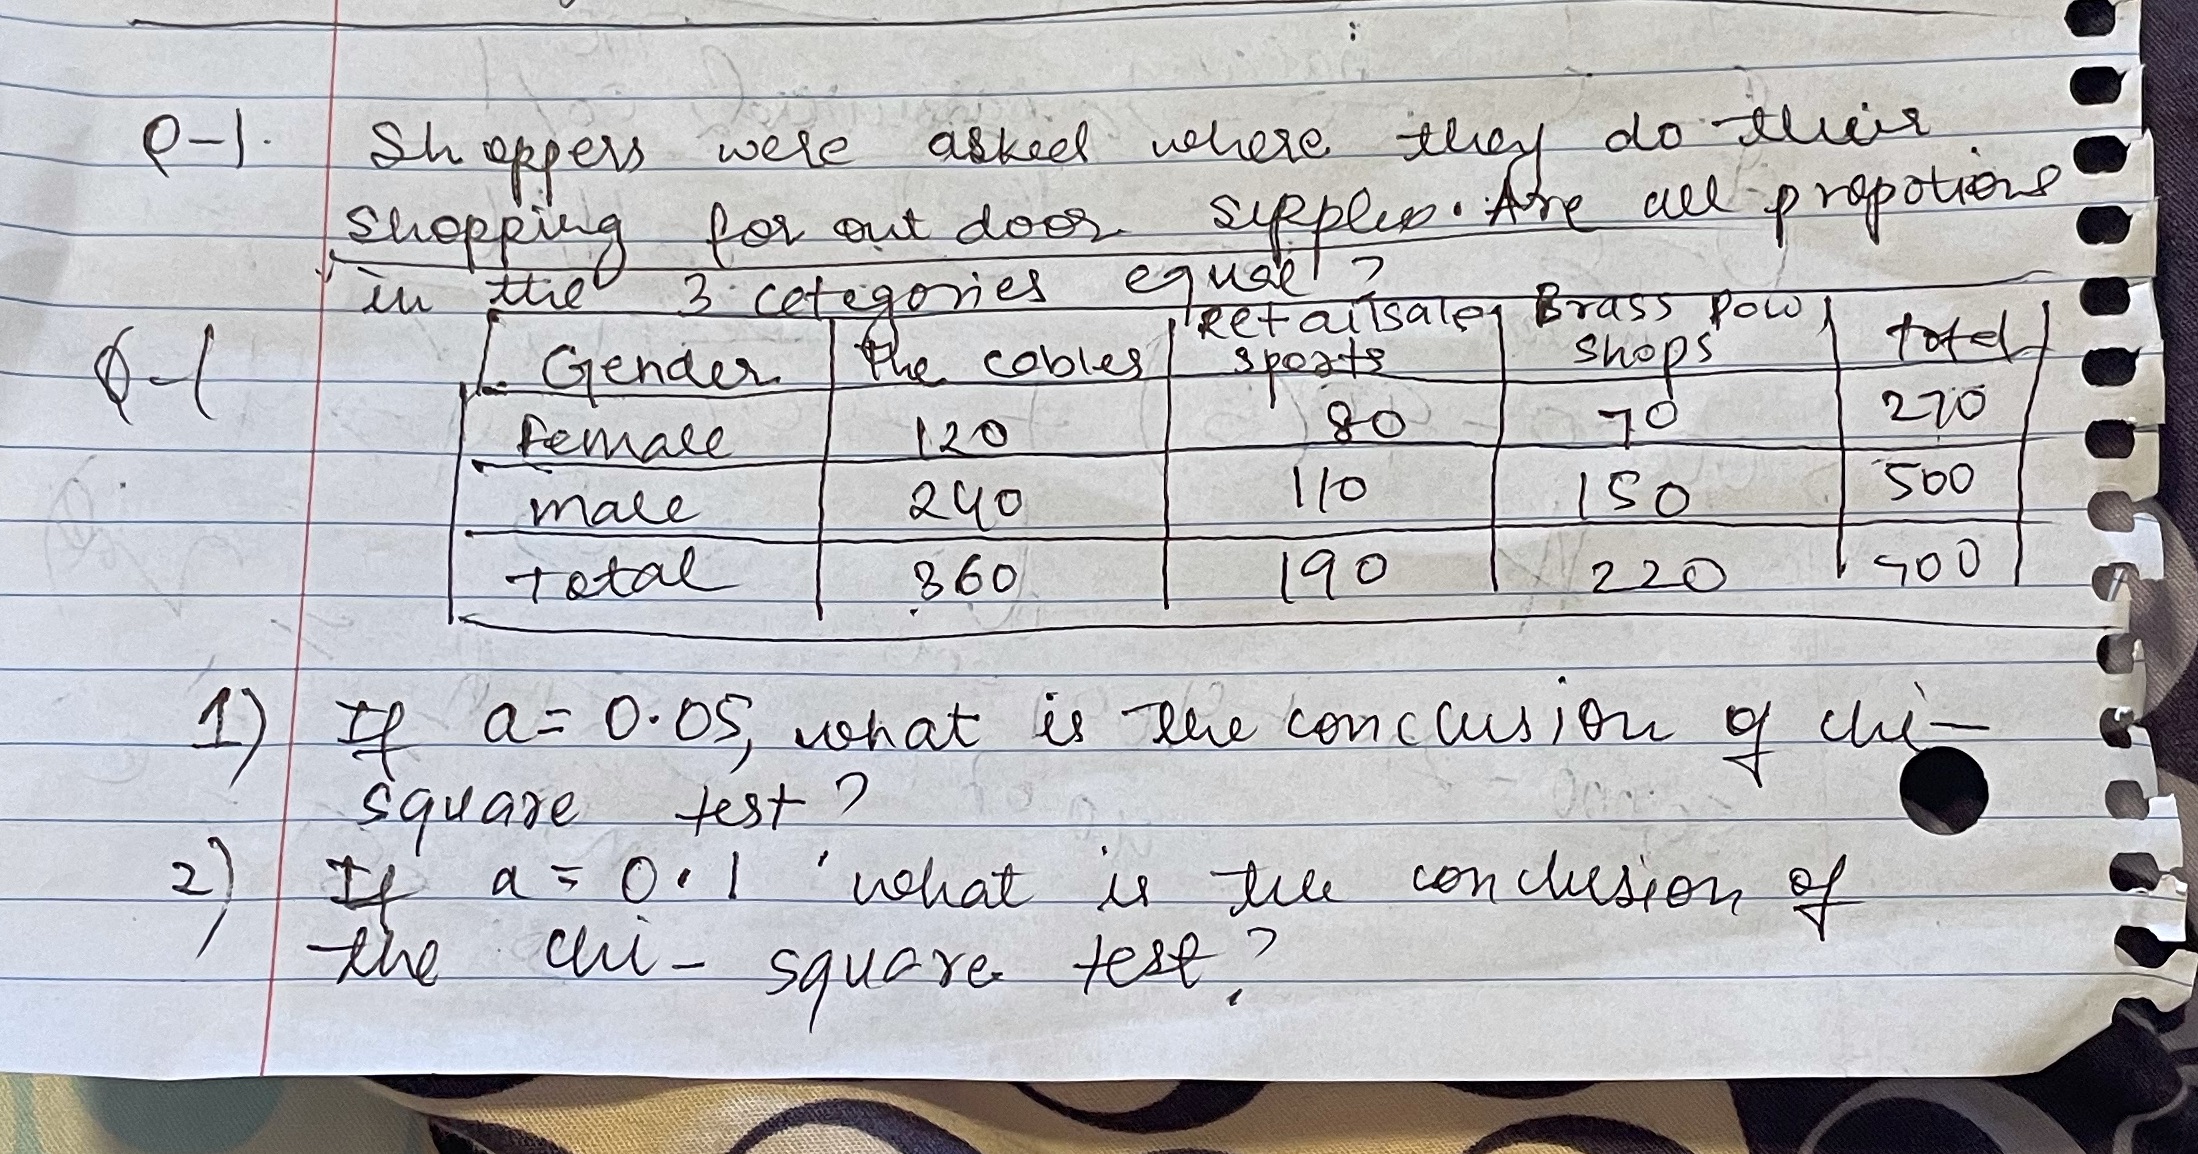 Q-1. Shoppers were asked where they do their
shopping for out door supplies. Are all propotions
in the 3 cetegories equal?
Q-1
Gender the cables Retailsales sports Brass Pow shops total
Female 120 80 70 270
male 240 110 150 500
total 360 190 220 700
1) If a = 0.05, what is the conclusion of chi-
square test?
2) If a = 0.1 what is the conclusion of
the chi-square test?